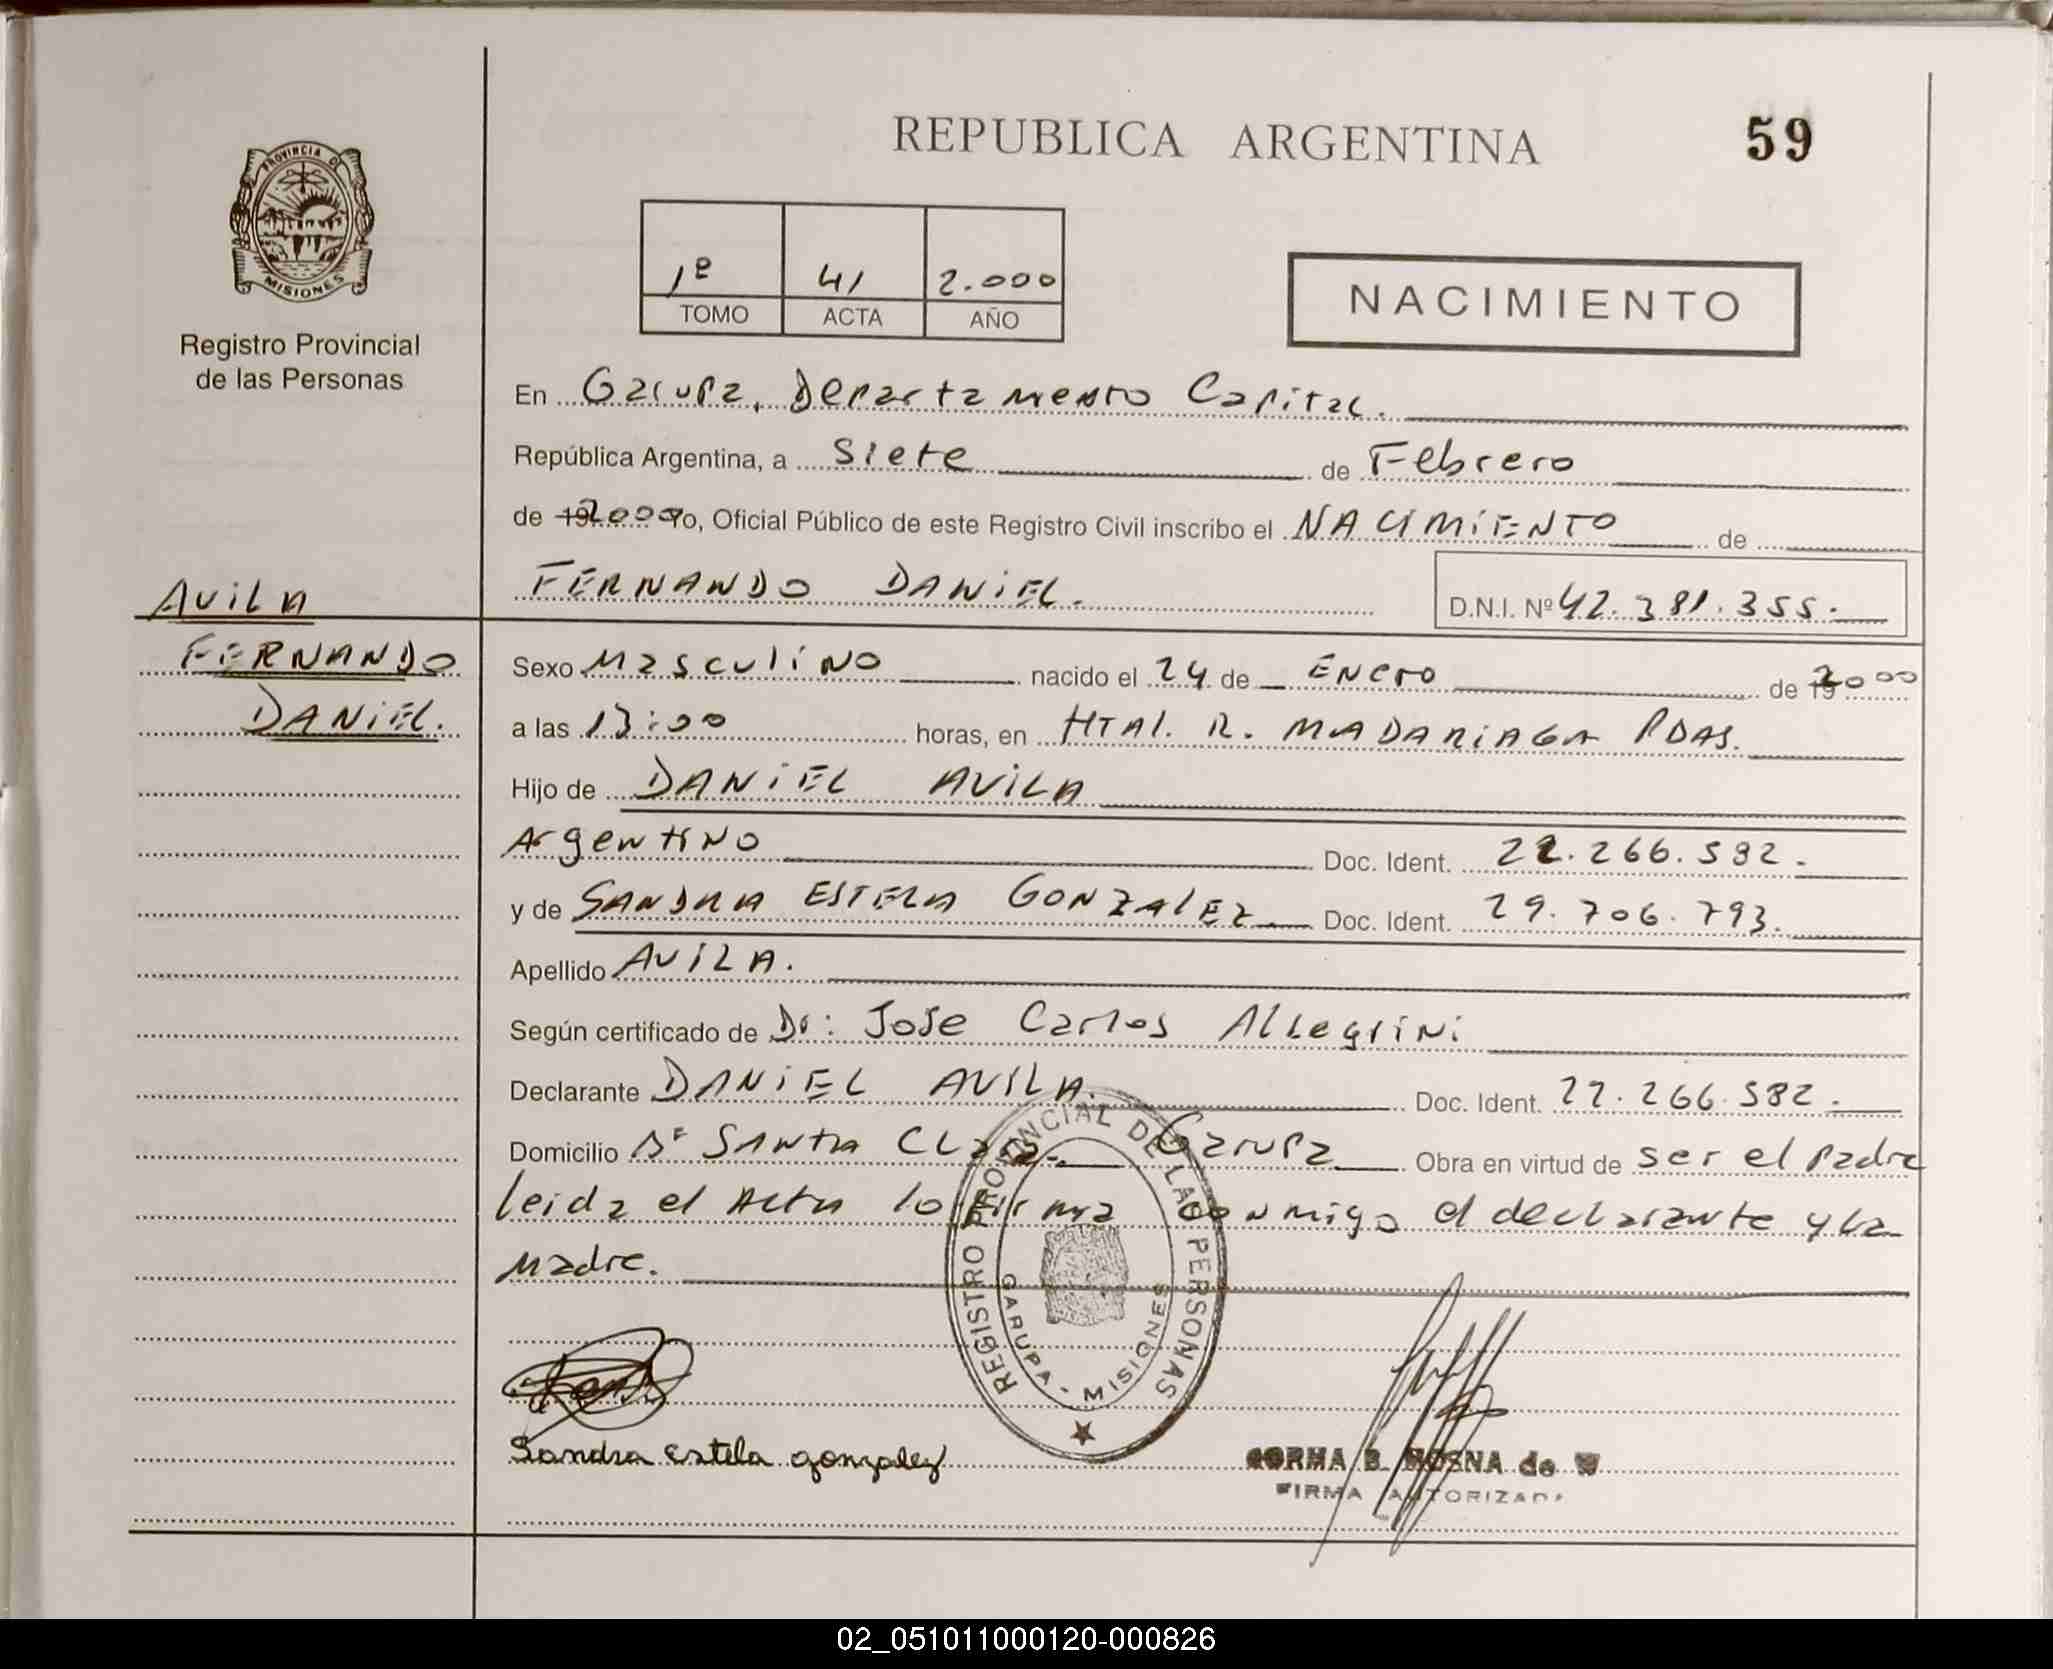 REPUBLICA ARGENTINA
59
PROVINCIA DE
MISIONES
Registro Provincial
de las Personas
1º 41 2.000
TOMO ACTA AÑO
NACIMIENTO
En Garupa, Departamento Capital.
República Argentina, a Siete de Febrero
de 192000 Yo, Oficial Público de este Registro Civil inscribo el NACIMIENTO de
AVILA
FERNANDO DANIEL.
D.N.I. Nº 42.381.355.
FERNANDO
Sexo Masculino nacido el 24 de Enero de 2000
DANIEL.
a las 13:00 horas, en Htal. R. MADARIAGA Pdas.
Hijo de DANIEL AVILA
Argentino Doc. Ident. 22.266.582.
y de SANDRA ESTELA GONZALEZ Doc. Ident. 29.706.793.
Apellido AVILA.
Según certificado de Dr: Jose Carlos Allegrini
Declarante DANIEL AVILA. Doc. Ident. 22.266.582.
Domicilio Bº SANTA CLara. Garupa Obra en virtud de ser el padre
leida el Acta lo firma conmigo el declarante y la
madre.
REGISTRO PROVINCIAL DE LAS PERSONAS
GARUPA - MISIONES
Sandra Estela gonzalez
B. MOSNA de W
FIRMA AUTORIZADA
02_051011000120-000826